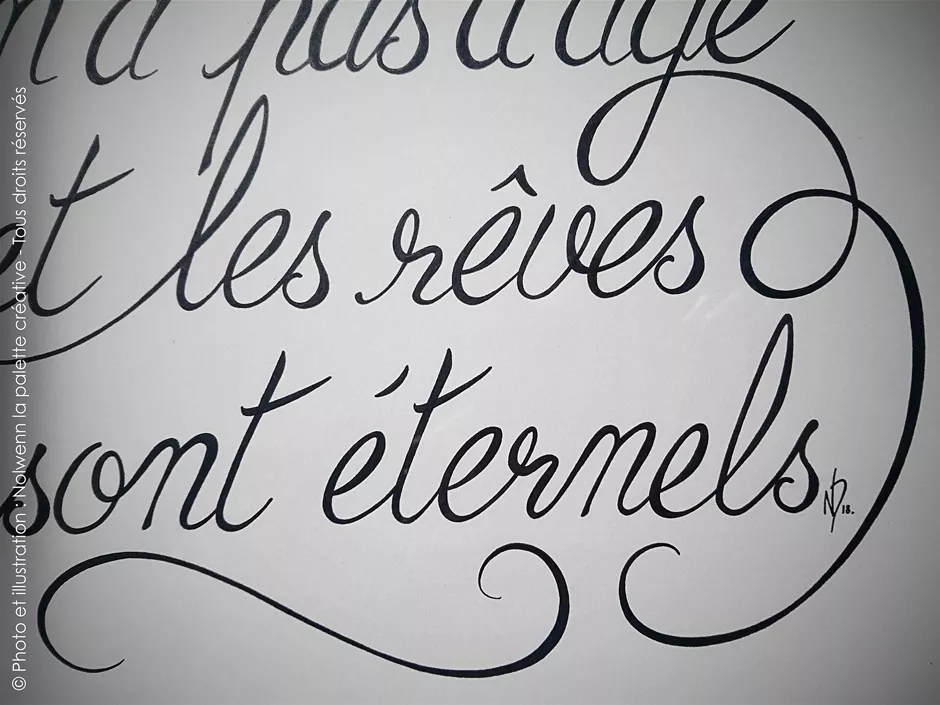 n'a pas d'âge
et les rêves
sont éternels
18.
© Photo et illustration : Nolwenn la palette créative - Tous droits réservés